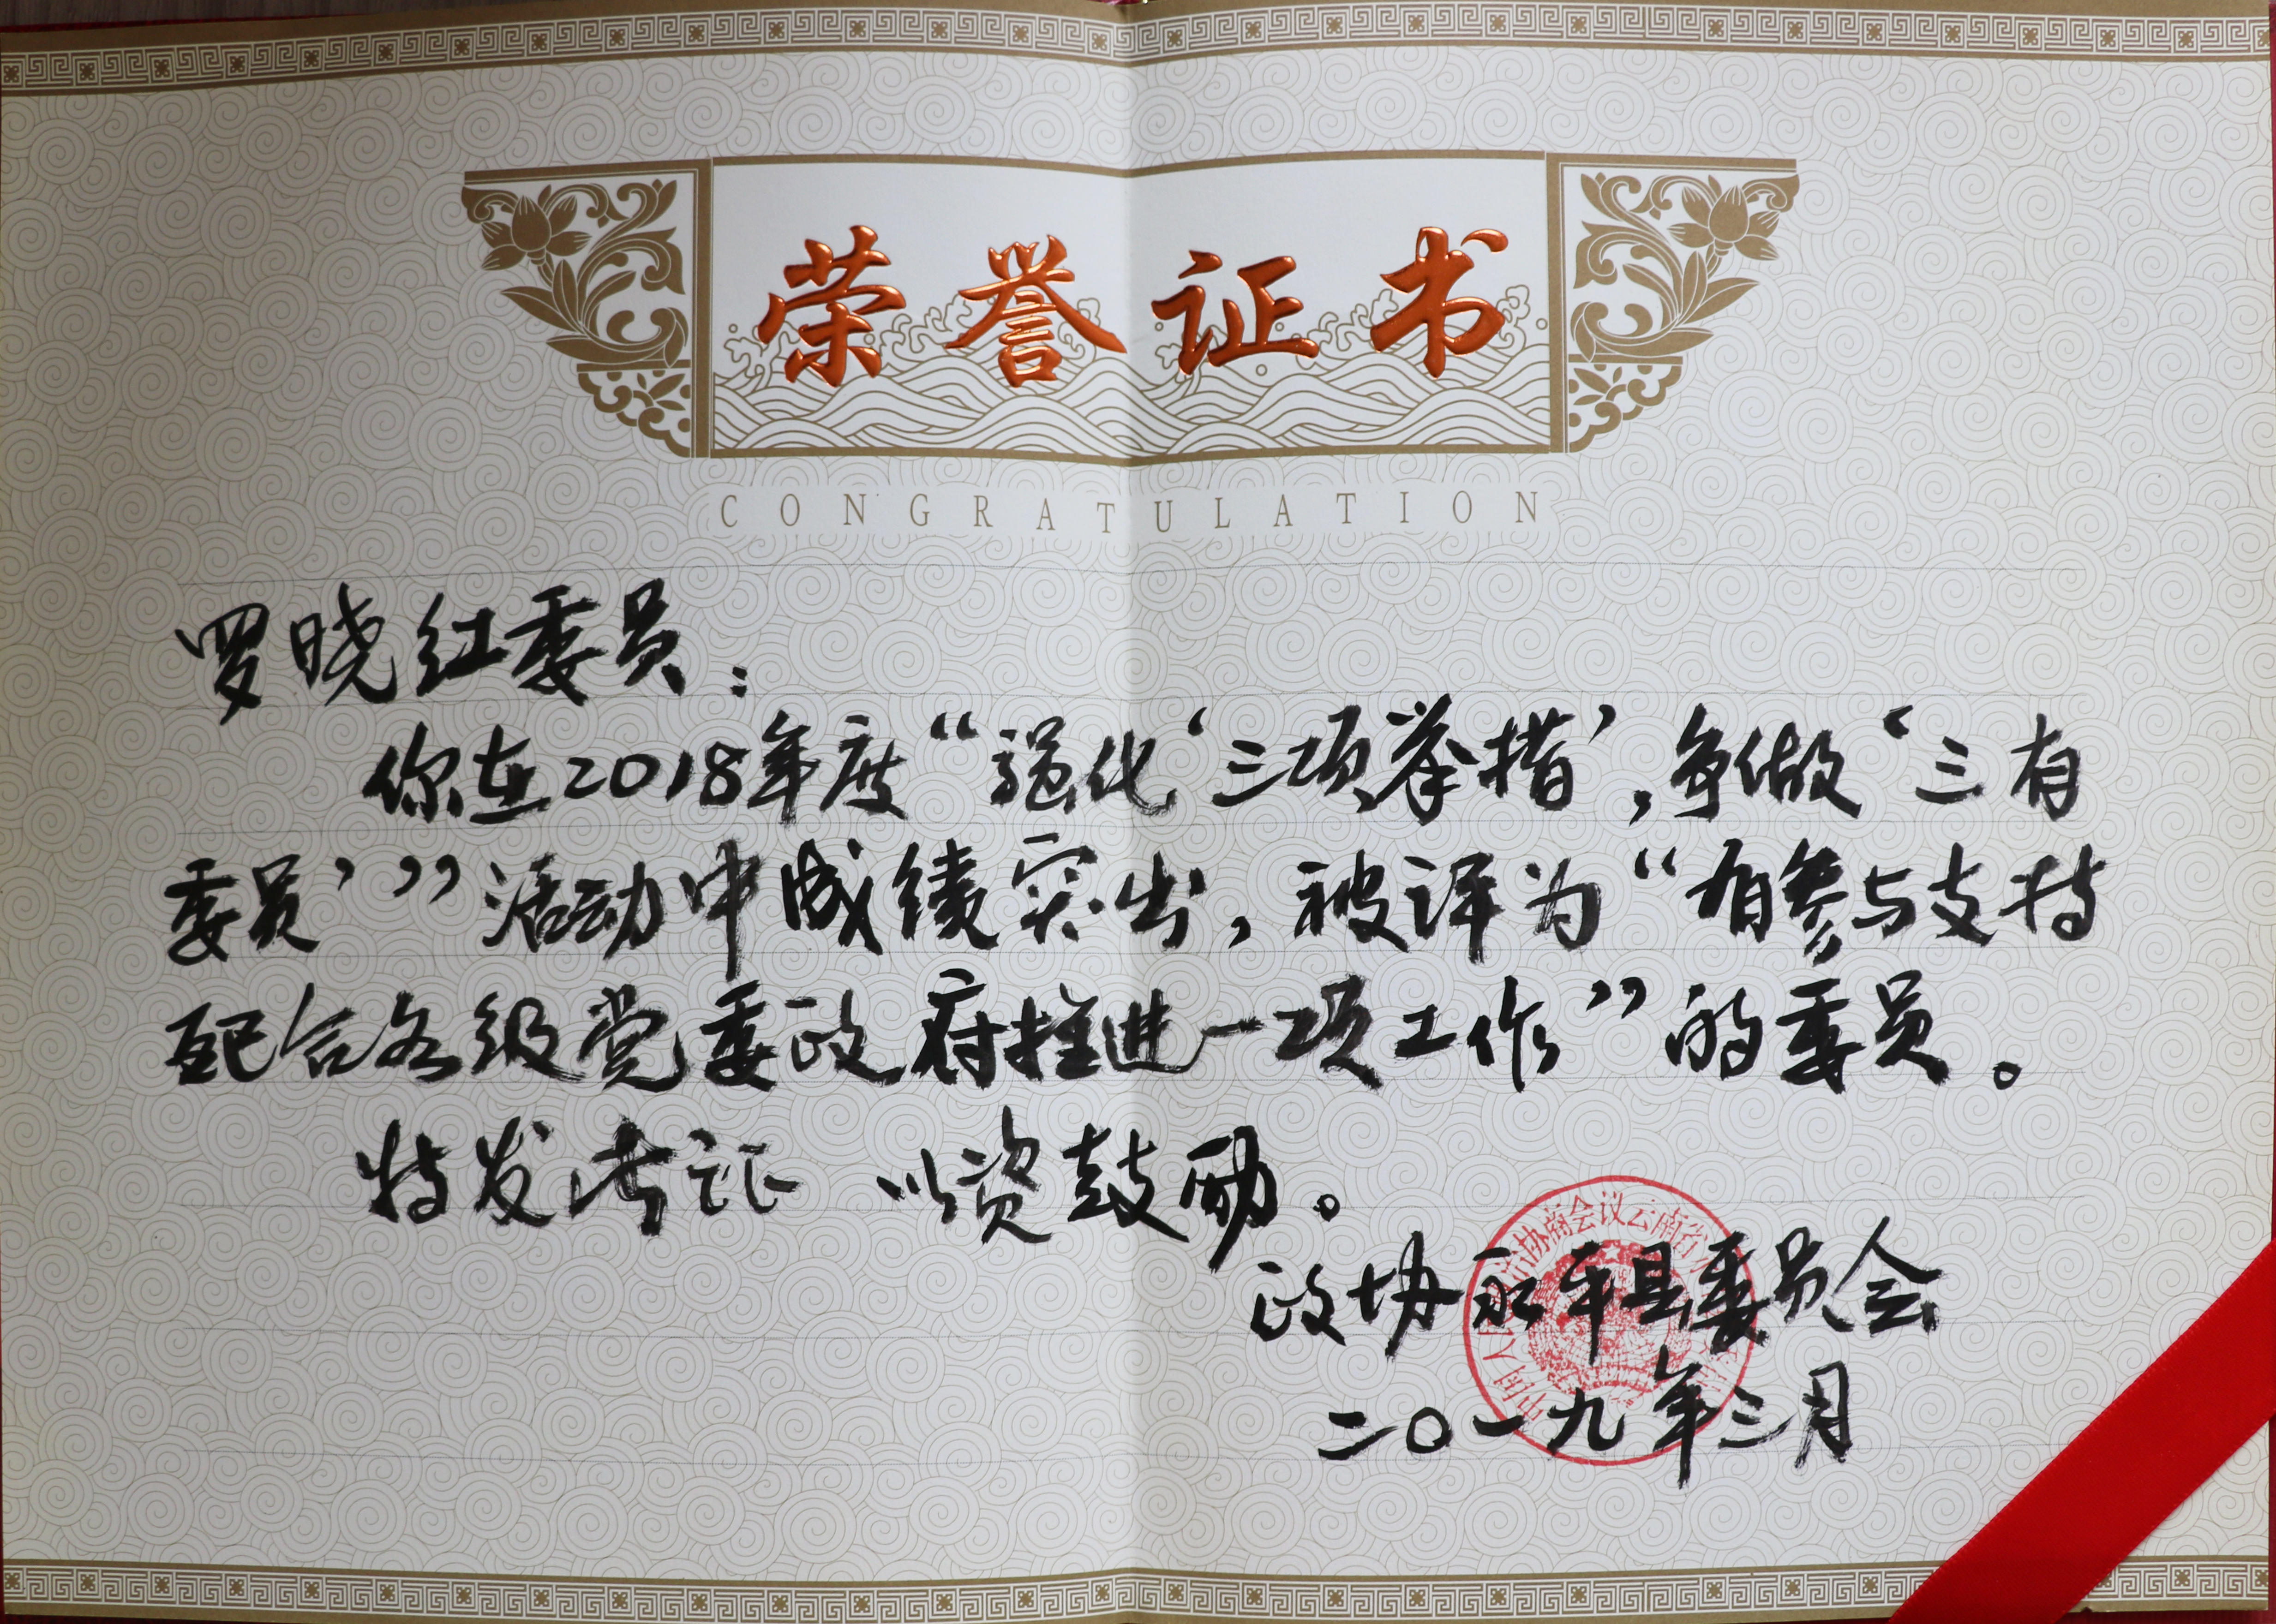 荣誉证书
CONGRATULATION
罗晓红委员：
你在2018年度“强化‘三项举措’，争做‘三有
委员’”活动中成绩突出，被评为“有参与支持
配合各级党委政府推进一项工作”的委员。
特发此证 以资鼓励。
政协永平县委员会
二〇一九年三月
中国人 协商会议云南省